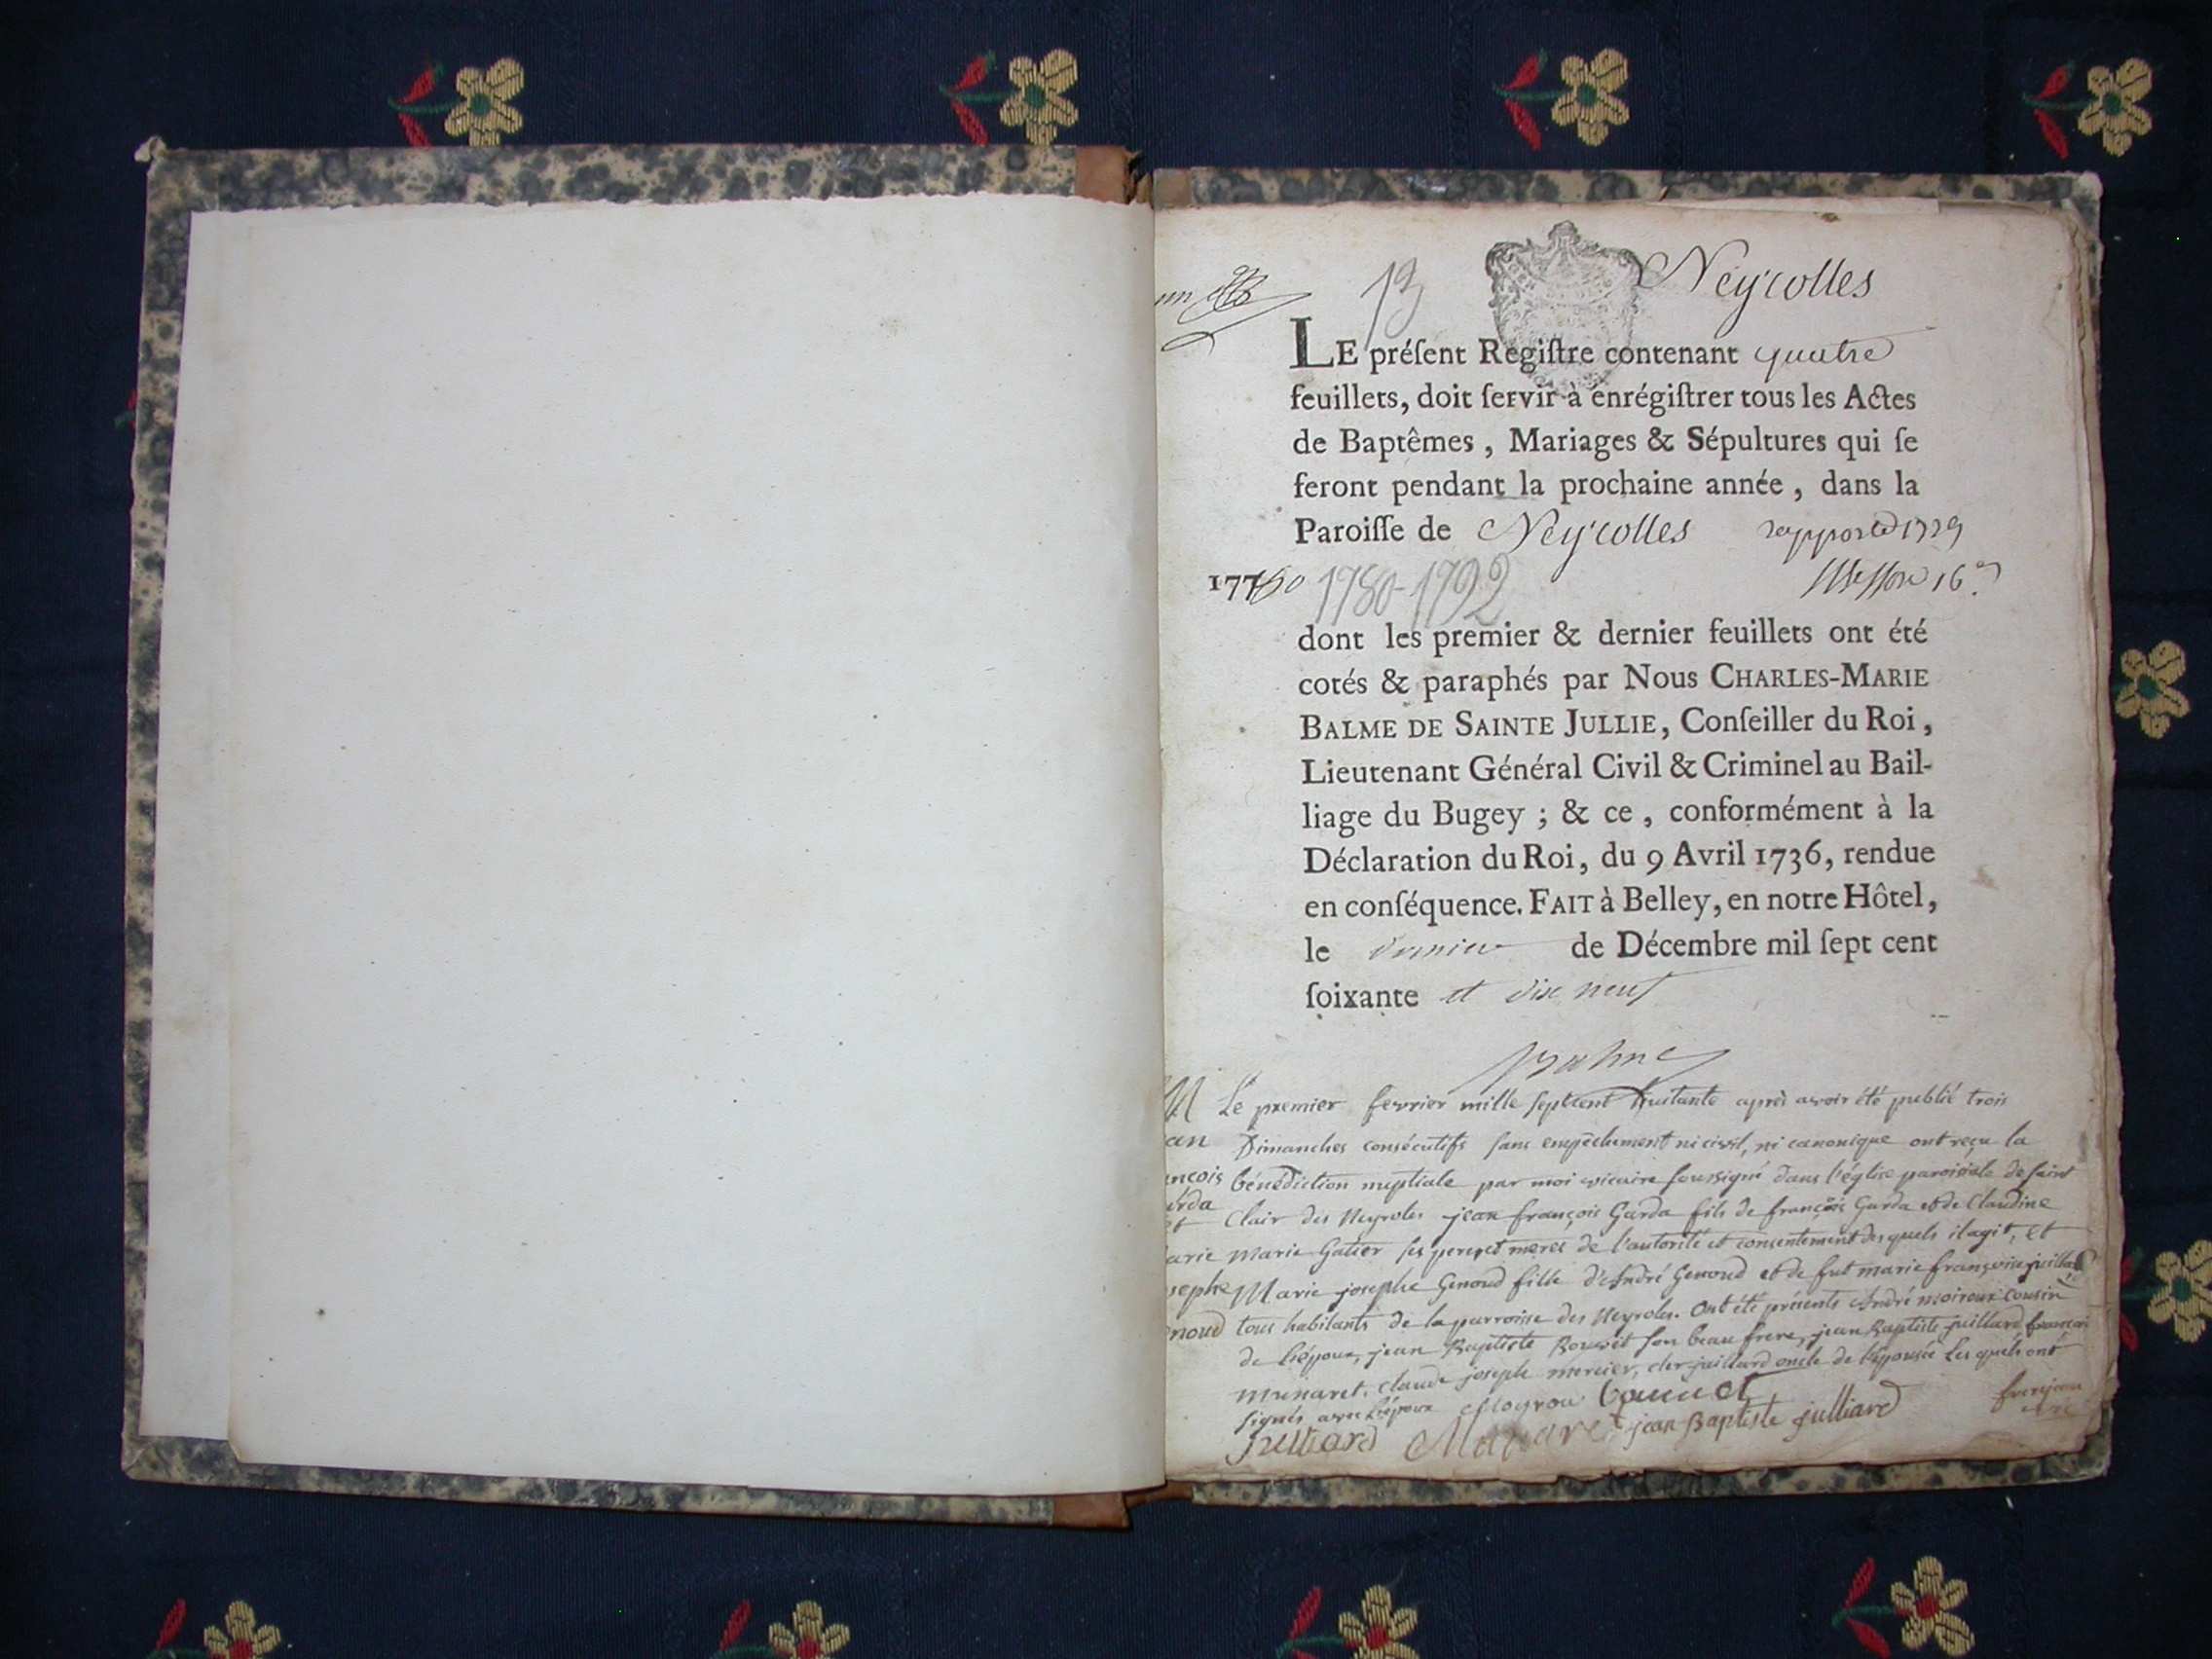 13
Neyrolles
LE préſent Regiſtre contenant quatre
feuillets, doit ſervir à enrégiſtrer tous les Actes
de Baptêmes, Mariages & Sépultures qui ſe
feront pendant la prochaine année, dans la
Paroiſſe de Neyrolles
1780
1780-1792
dont les premier & dernier feuillets ont été
cotés & paraphés par Nous CHARLES-MARIE
BALME DE SAINTE JULLIE, Conſeiller du Roi,
Lieutenant Général Civil & Criminel au Bail-
liage du Bugey; & ce, conformément à la
Déclaration du Roi, du 9 Avril 1736, rendue
en conſéquence. FAIT à Belley, en notre Hôtel,
le dernier de Décembre mil ſept cent
ſoixante et dix neuf
Balme
Le premier fevrier mille septcent huitante après avoir été publié trois
Dimanches consécutifs sans empêchement ni civil, ni canonique ont reçu la
bénédiction nuptiale par moi vicaire soussigné dans l'église paroissiale de saint
Clair des Neyroles jean françois Garda fils de françois Garda et de Claudine
Marie Galier ses pere et meres de l'autorité et consentement des quels il agit, et
Marie josephe Genoud fille d'André Genoud et de fut marie françoise juillard
tous habitants de la parroisse des Neyroles. Ont été présents André moiroux cousin
de l'époux, jean Baptiste Bouvet son beau frere, jean Baptiste juillard françois
munaret, claude joseph mercier, juillard oncle de l'épouse les quels ont
signés avec l'époux Moyrou bouvet
julliard Munaret jean Baptiste julliard